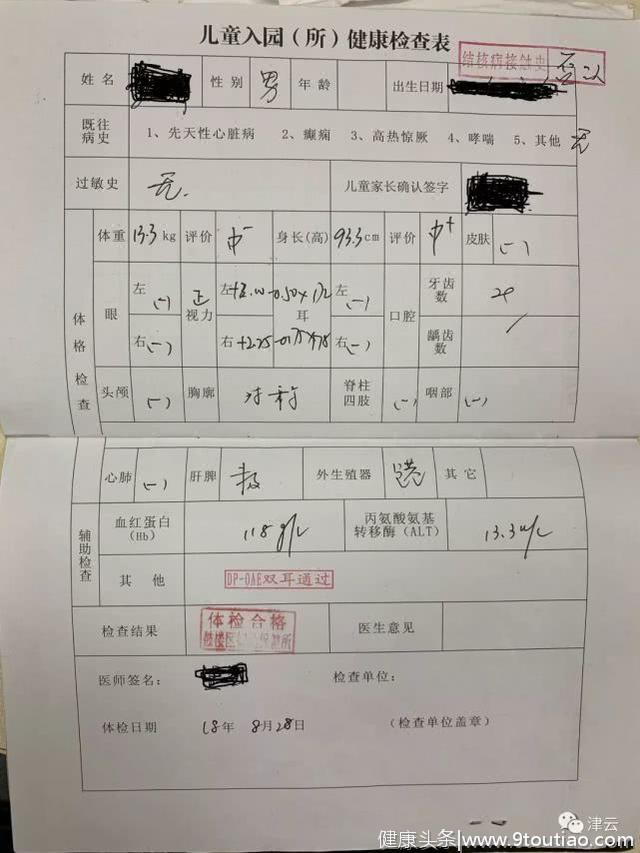 儿童入园（所）健康检查表
结核病接触史 否认
姓名 性别 男 年龄 出生日期
既往病史 1、先天性心脏病 2、癫痫 3、高热惊厥 4、哮喘 5、其他 无
过敏史 无. 儿童家长确认签字
体格检查
体重 13.3 kg 评价 中- 身长(高) 93.3 cm 评价 中+ 皮肤 (-)
眼 左 (-) 视力 正 左 耳 左 (-) 口腔 牙齿数
右 (-) 右 +2.75 右 (-) 龋齿数 /
头颅 (-) 胸廓 对称 脊柱四肢 (-) 咽部 (-)
心肺 (-) 肝脾 外生殖器 其它
辅助检查
血红蛋白(Hb) 118 g/L 丙氨酸氨基转移酶(ALT) 13.3 u/L
其他 DP-OAE双耳通过
检查结果 体检合格 医生意见
医师签名： 检查单位：
体检日期 18年 8月28日 （检查单位盖章）
津云
健康头条/www.9toutiao.com